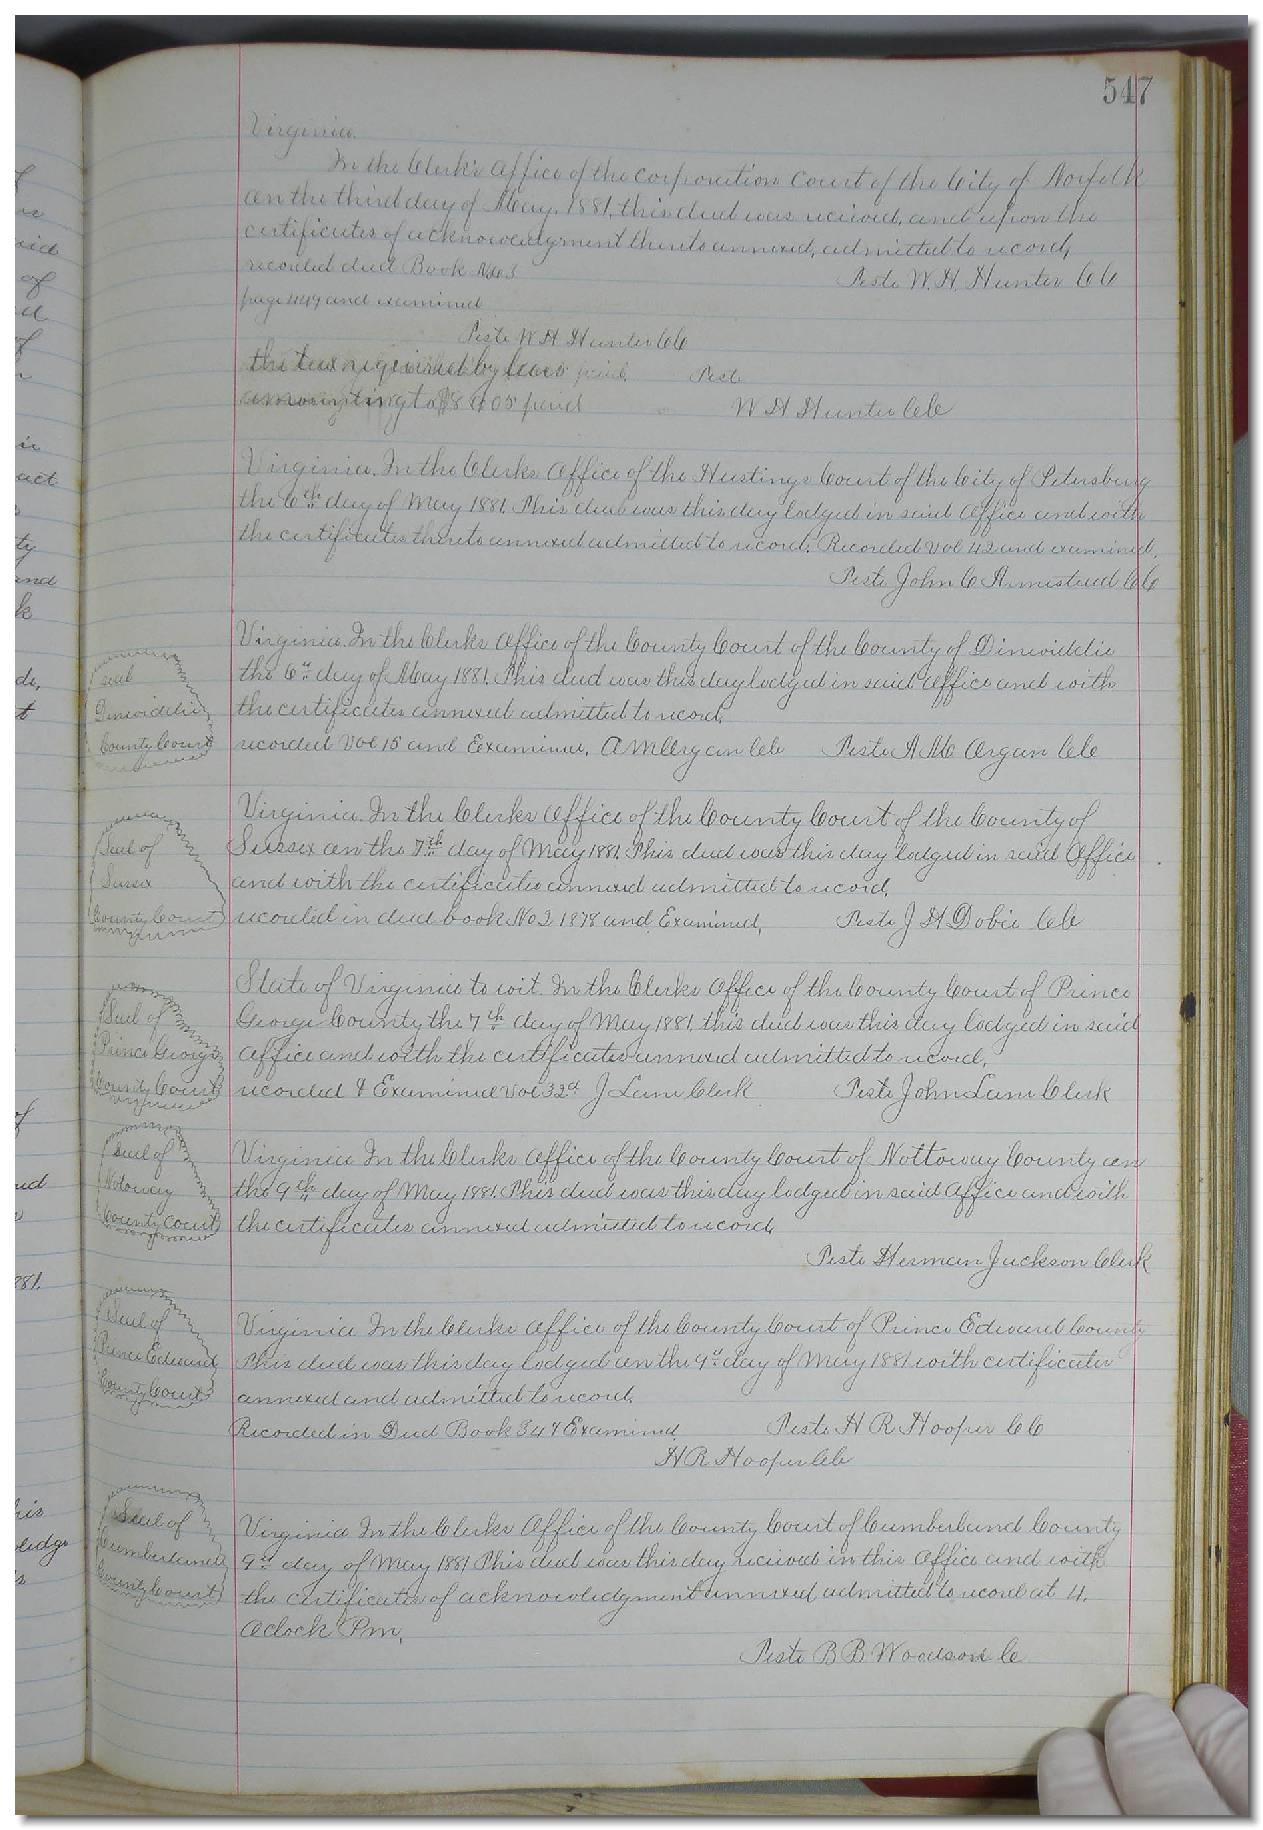 547
Virginia.
In the Clerk's Office of the corporation Court of the City of Norfolk
on the third day of May, 1881, this deed was received, and upon the
certificates of acknowledgment thereto annexed, admitted to record,
recorded deed Book No
Teste W. H. Hunter CC
page 449 and examined
Teste W H Hunter CC
the tax required by laws paid. Test
amounting to $8 paid W H Hunter Clk
Virginia. In the Clerks Office of the Hustings Court of the City of Petersburg
the 6th day of May 1881. This deed was this day lodged in said Office and with
the certificates thereto annexed admitted to record. Recorded Vol 42 and examined.
Teste John C Armistead CC
Virginia. In the Clerks Office of the County Court of the County of Dinwiddie
the 6th day of May 1881. This deed was this day lodged in said Office and with
the certificates annexed admitted to record,
recorded Vol 15 and Examined, A M Orgain Clk Teste A M Orgain Clk
seal
Dinwiddie
County Court
Virginia. In the Clerks Office of the County Court of the County of
Sussex on the 7th day of May 1881. This deed was this day lodged in said Office
and with the certificates annexed admitted to record,
recorded in deed book No 2 1878 and Examined, Teste J H Dobie Clk
Seal of
Sussex
County Court
State of Virginia to wit. In the Clerks Office of the County Court of Prince
George County the 7th day of May 1881 this deed was this day lodged in said
Office and with the certificates annexed admitted to record,
recorded & Examined Vol 32d J Lam Clerk Teste John Lam Clerk
Seal of
Prince George
County Court
Virginia In the Clerks Office of the County Court of Nottoway County on
the 9th day of May 1881. This deed was this day lodged in said Office and with
the certificates annexed admitted to record,
Teste Herman Jackson Clerk
Seal of
Notoway
County Court
Virginia In the Clerks Office of the County Court of Prince Edward County
This deed was this day lodged on the 9th day of May 1881 with certificates
annexed and admitted to record,
Recorded in Deed Book 34 & Examined, Teste H R Hooper CC
H R Hooper Clk
Seal of
Prince Edward
County Court
Virginia In the Clerks Office of the County Court of Cumberland County
9th day of May 1881 This deed was this day received in this Office and with
the certificates of acknowledgment annexed admitted to record at 4.
Oclock Pm,
Teste B B Woodson C
Seal of
Cumberland
County Court